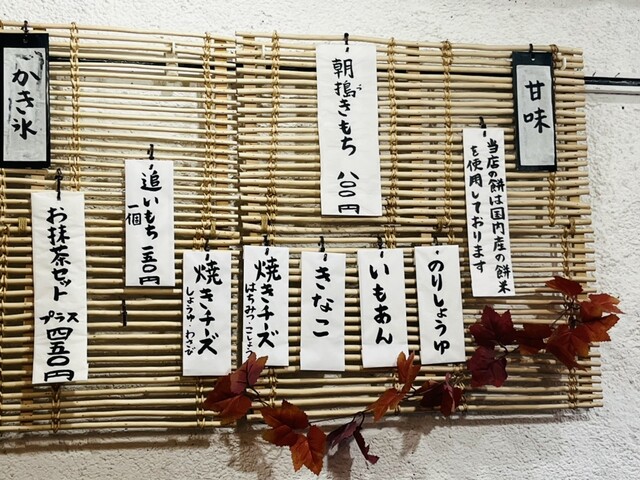 甘味
当店の餅は国内産の餅米
を使用しております
朝搗きもち 八〇〇円
つ
のりしょうゆ
いもあん
きなこ
焼きチーズ
はちみつ・こしょう
焼きチーズ
しょうゆ・わさび
追いもち 一五〇円
一個
お抹茶セット
プラス 四五〇円
かき氷